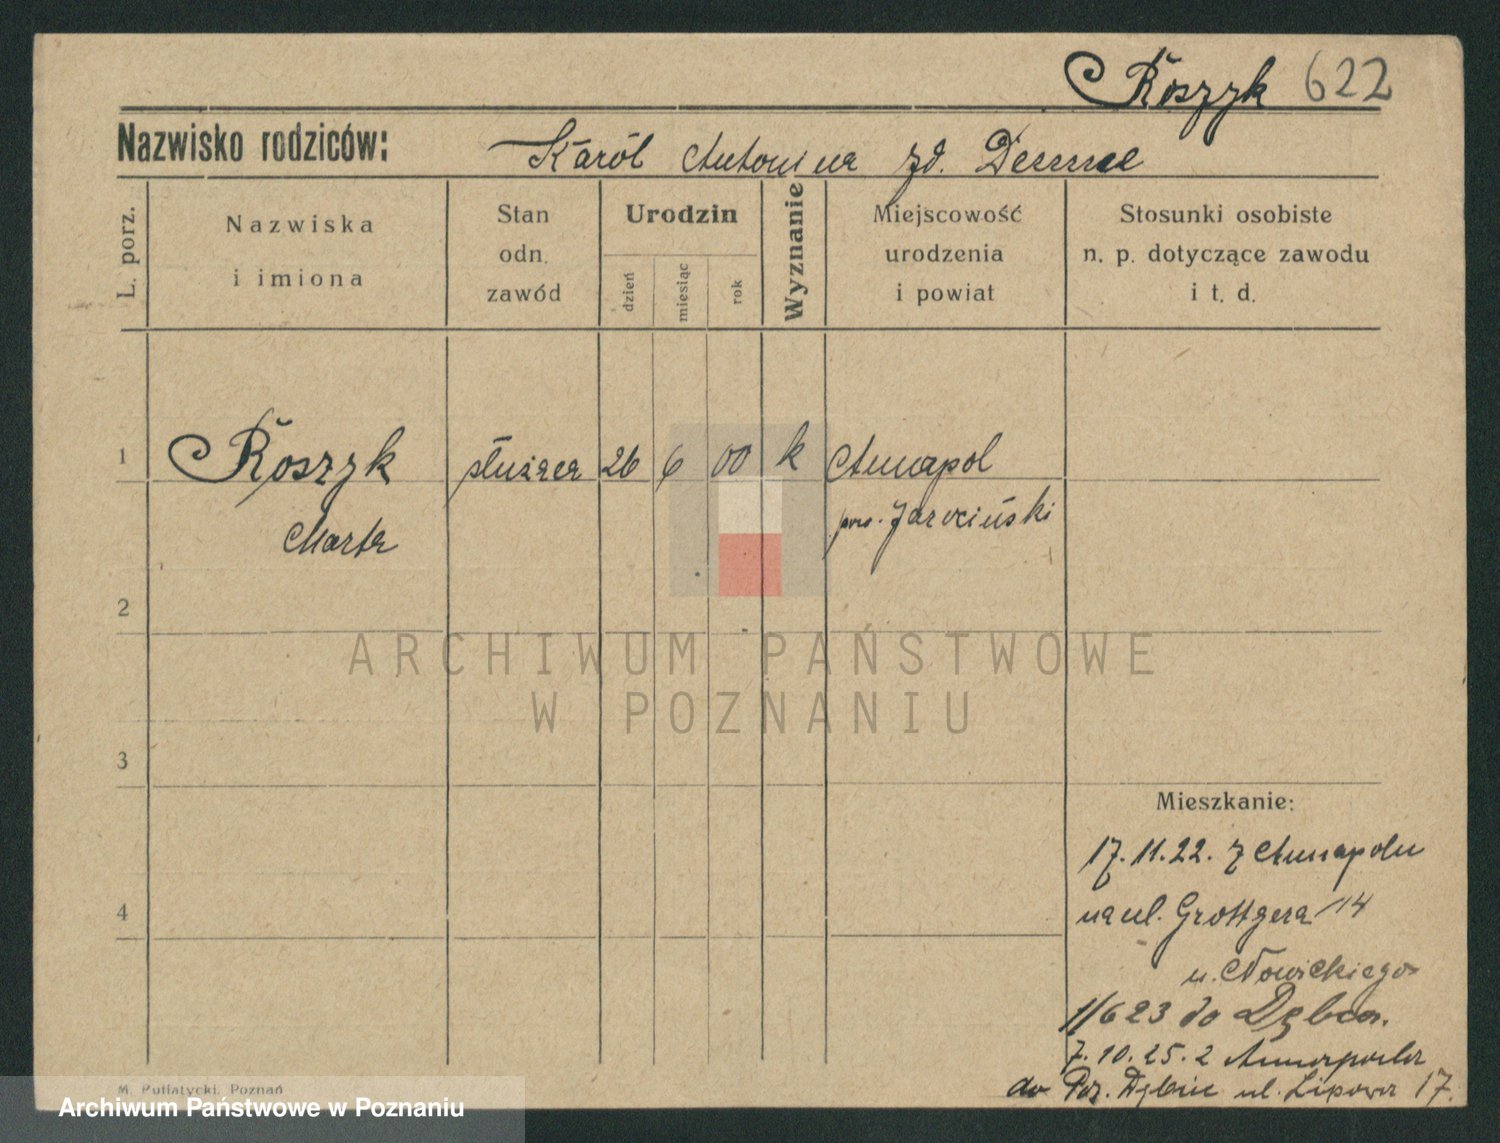 Roszyk 622
Nazwisko rodziców: Karól Antonina zd.
L. porz.
Nazwiska i imiona
Stan odn. zawód
Urodzin
dzień miesiąc rok
Wyznanie
Miejscowość urodzenia i powiat
Stosunki osobiste n. p. dotyczące zawodu i t. d.
1 Roszyk służąca 26 6 00 k Annapol
Marta pow. Jarociński
2
ARCHIWUM PAŃSTWOWE
W POZNANIU
3
Mieszkanie:
17.11.22. z Annapolu
na ul. Grottgera 14
u. Nowickiego
4
1/6 23 do Dębca.
7.10.25. z Annapola
do Poz. Dębiec ul. Lipowa 17.
M. Putiatycki, Poznań
Archiwum Państwowe w Poznaniu